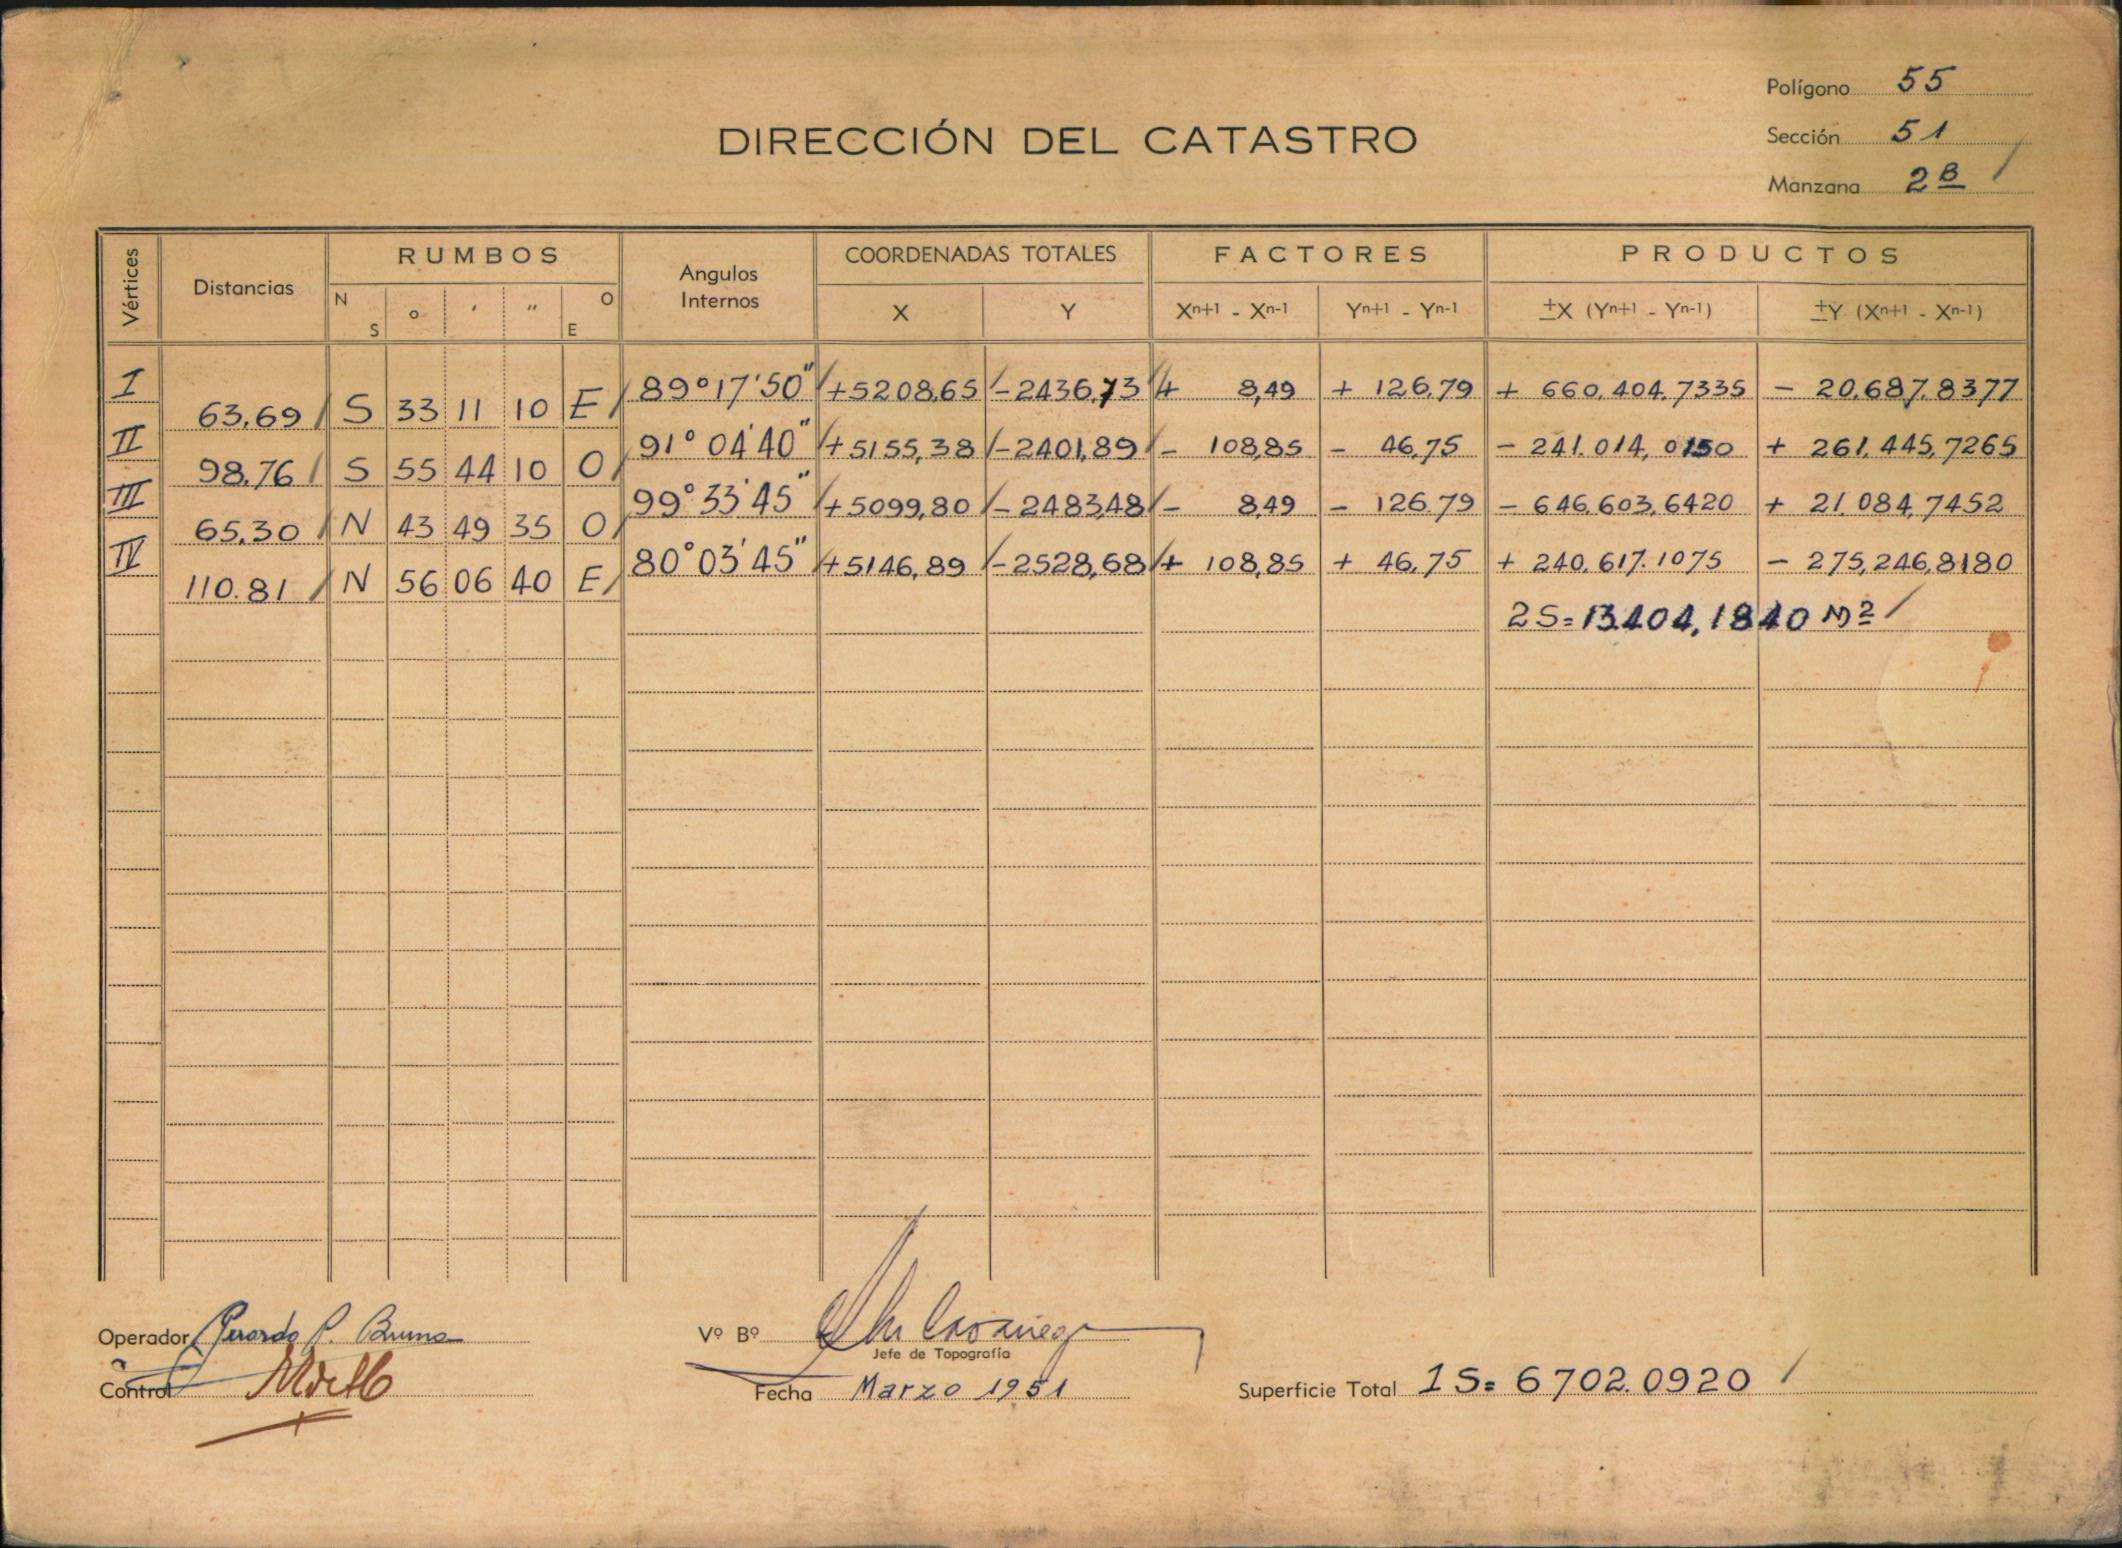 Polígono 55
DIRECCIÓN DEL CATASTRO
Sección 51
Manzana 2 B
Vértices Distancias RUMBOS Angulos Internos COORDENADAS TOTALES FACTORES PRODUCTOS
N S ° ' " O E X Y Xn+1 - Xn-1 Yn+1 - Yn-1 ±X (Yn+1 - Yn-1) ±Y (Xn+1 - Xn-1)
I 89°17'50" +5208,65 -2436,73 + 8,49 + 126,79 + 660.404,7335 - 20.687,8377
63,69 S 33 11 10 E
II 91°04'40" +5155,38 -2401,89 - 108,85 - 46,75 - 241.014,0150 + 261.445,7265
98,76 S 55 44 10 O
III 99°33'45" +5099,80 -2483,48 - 8,49 - 126.79 - 646.603,6420 + 21.084,7452
65,30 N 43 49 35 O
IV 80°03'45" +5146,89 -2528,68 + 108,85 + 46,75 + 240.617.1075 - 275,246,8180
110.81 N 56 06 40 E
2S=13.404,1840 M2
Operador Gerardo P. Bruno
Vº Bº
Jefe de Topografía
Control
Fecha Marzo 1951
Superficie Total 1S= 6702.0920